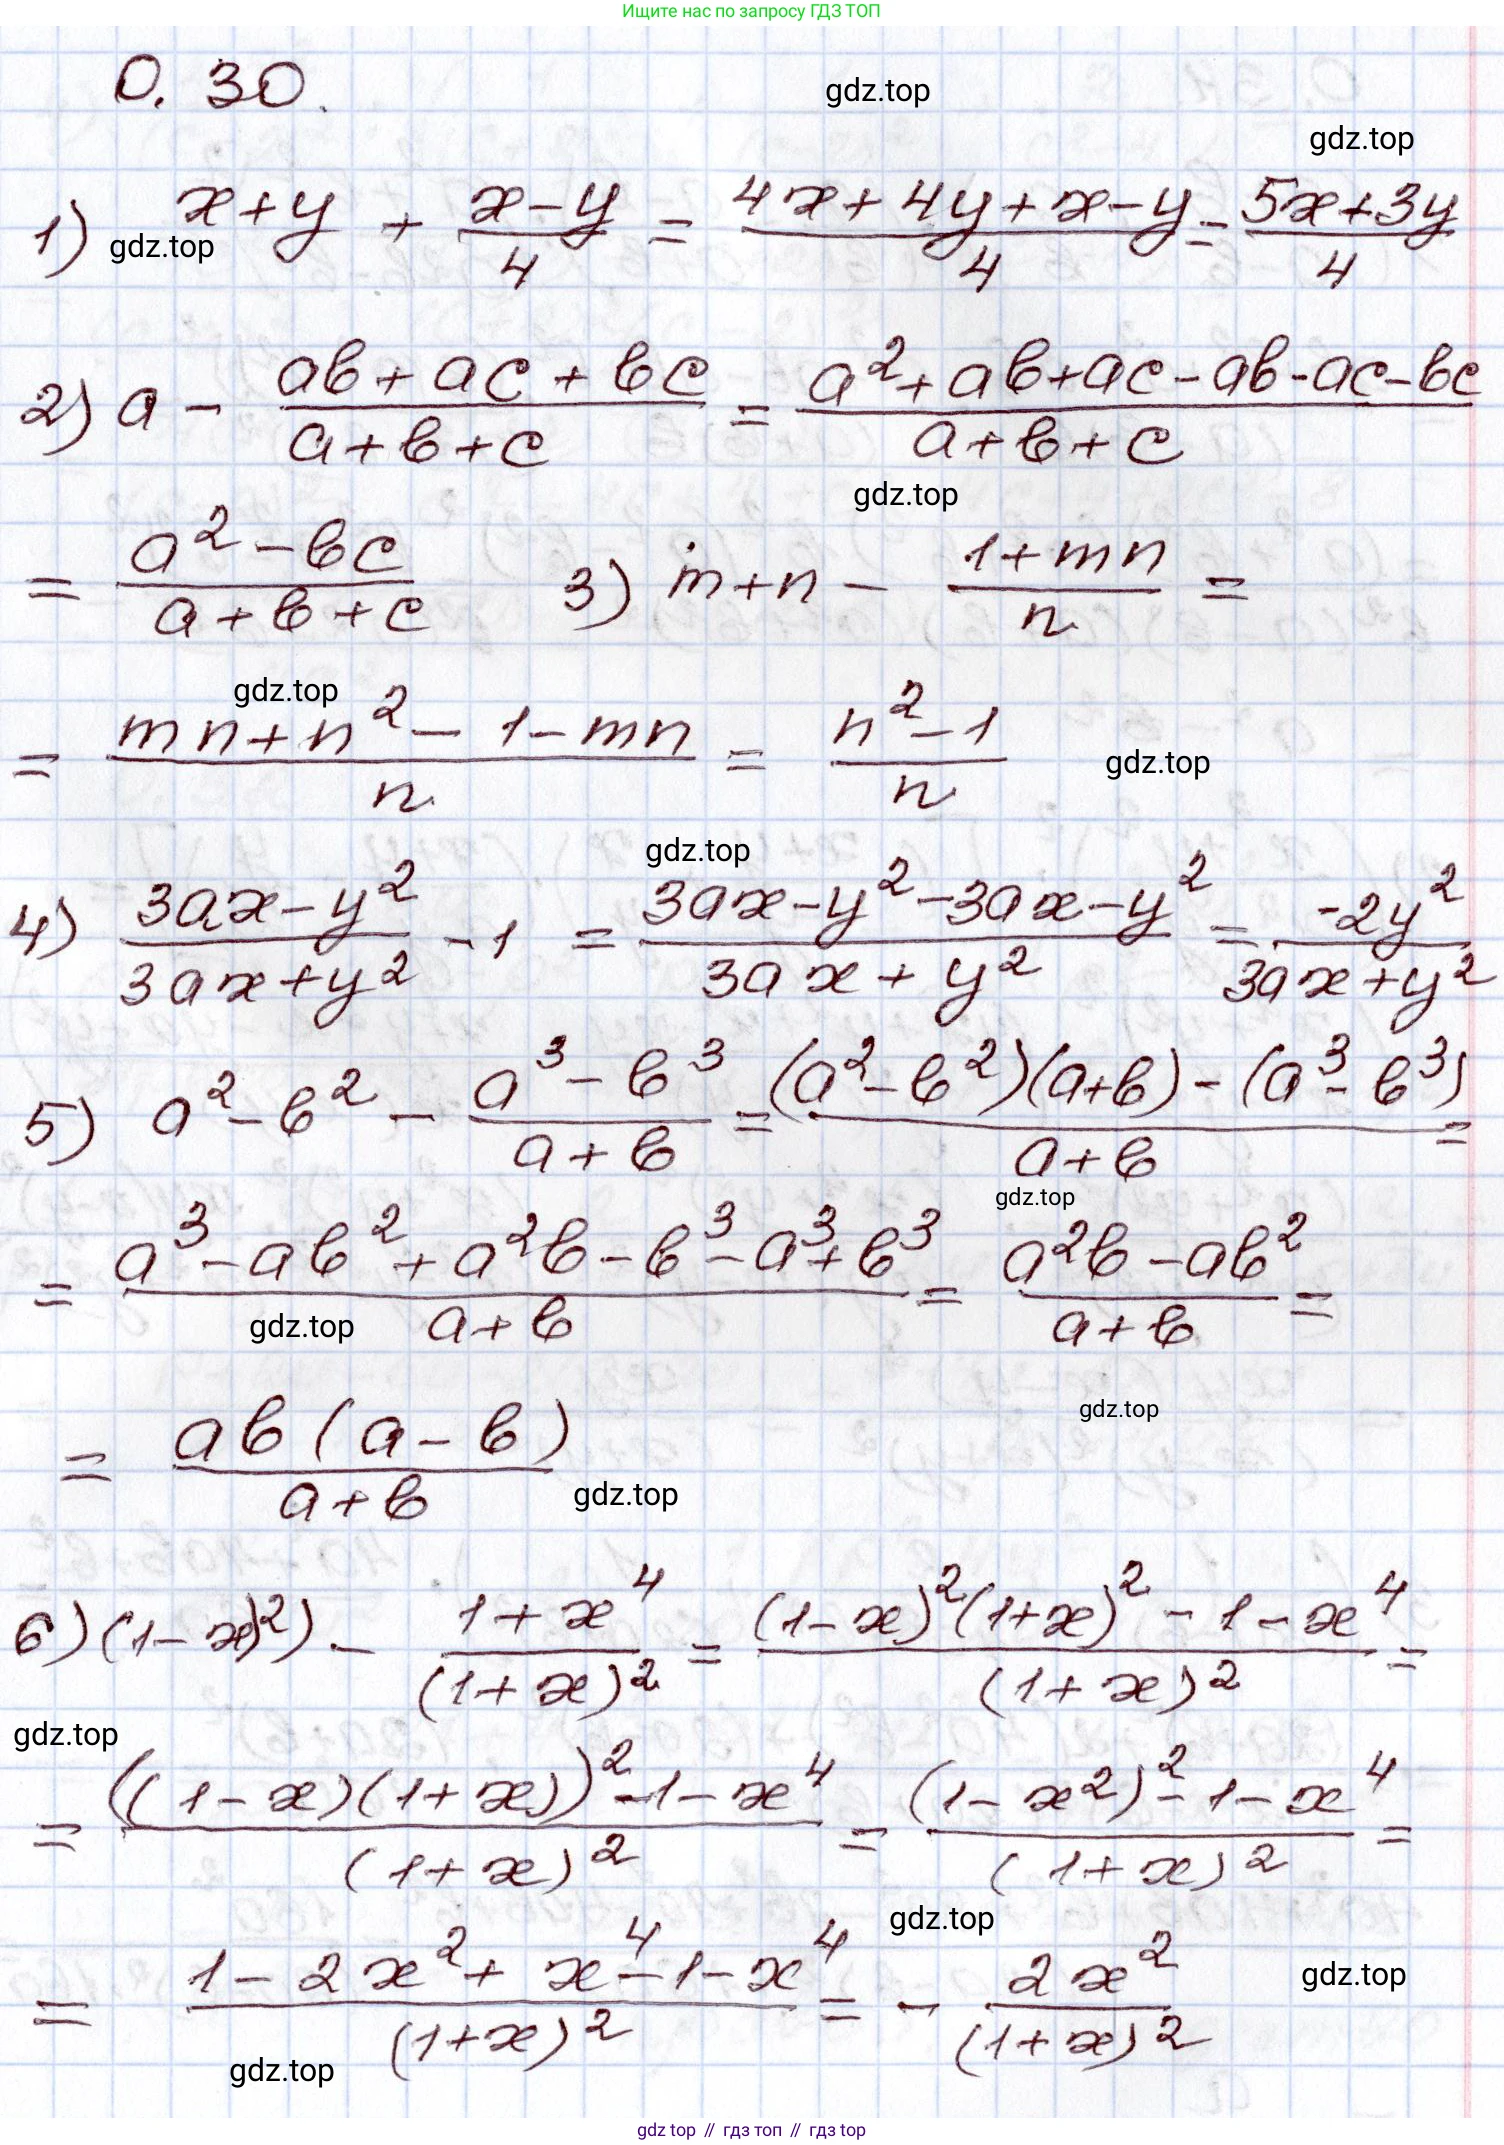 Ищите нас по запросу ГДЗ ТОП
0.30.
gdz.top
gdz.top
1) x+y + (x-y)/4 = (4x+4y+x-y)/4 = (5x+3y)/4
gdz.top
2) a - (ab+ac+bc)/(a+b+c) = (a²+ab+ac-ab-ac-bc)/(a+b+c)
gdz.top
= (a²-bc)/(a+b+c) 3) m+n - (1+mn)/n =
gdz.top
= (mn+n²-1-mn)/n = (n²-1)/n
gdz.top
gdz.top
4) (3ax-y²)/(3ax+y²) - 1 = (3ax-y²-3ax-y²)/(3ax+y²) = (-2y²)/(3ax+y²)
5) a²-b² - (a³-b³)/(a+b) = ((a²-b²)(a+b)-(a³-b³))/(a+b) =
gdz.top
= (a³-ab²+a²b-b³-a³+b³)/(a+b) = (a²b-ab²)/(a+b) =
gdz.top
gdz.top
= (ab(a-b))/(a+b)
gdz.top
6) (1-x)²) - (1+x⁴)/(1+x)² = ((1-x)²(1+x)²-1-x⁴)/(1+x)² =
gdz.top
= (((1-x)(1+x))²-1-x⁴)/(1+x)² = ((1-x²)²-1-x⁴)/(1+x)² =
gdz.top
= (1-2x²+x⁴-1-x⁴)/(1+x)² = - (2x²)/(1+x)²
gdz.top
gdz.top
gdz top // гдз топ // gdz top